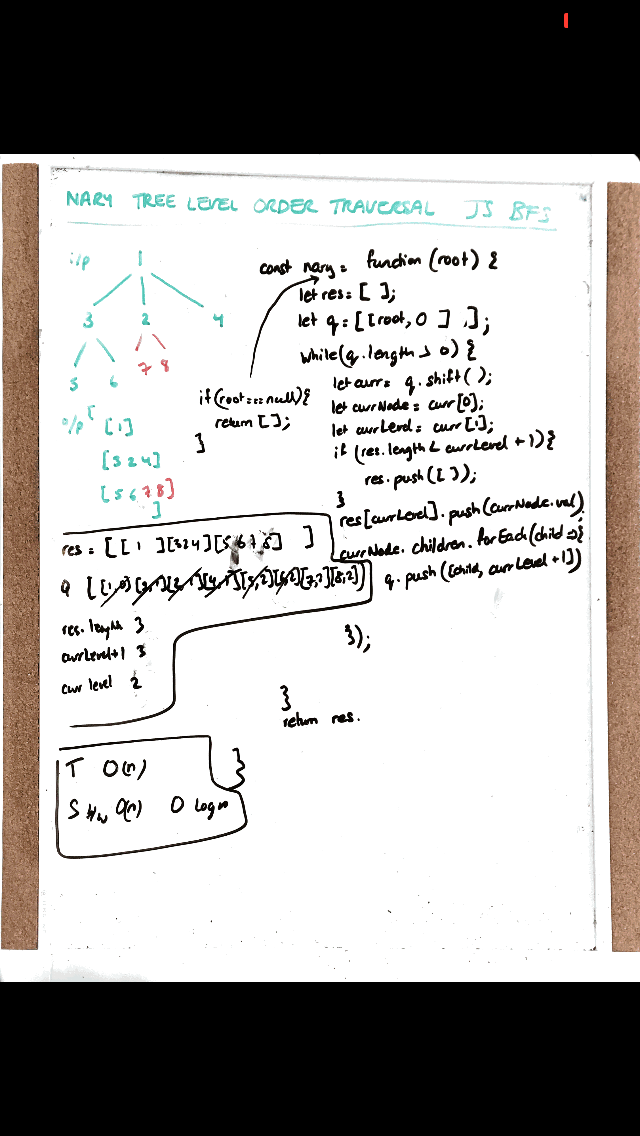 NARY TREE LEVEL ORDER TRAVERSAL JS BFS
i/p
1
3 2 4
5 6 7 8
o/p [
[1]
[3 2 4]
[5 6 7 8]
]
const nary = function (root) {
if (root === null) {
return [];
}
let res = [ ];
let q = [ [root, 0 ] , ];
while (q.length > 0) {
let curr = q.shift( );
let currNode = curr[0];
let currLevel = curr[1];
if (res.length < currLevel + 1) {
res.push([ ]);
}
res[currLevel].push(currNode.val)
currNode.children.forEach(child => {
q.push([child, currLevel + 1])
});
}
return res.
res = [ [ 1 ] [3 2 4] [5 6 7 8] ]
Q [ [1,0] [3,1] [2,1] [4,1] [5,2] [6,2] [7,2] [8,2] ]
res.length 3
currLevel+1 3
curr level 2
T O(n)
S H/W O(n) O log n
}